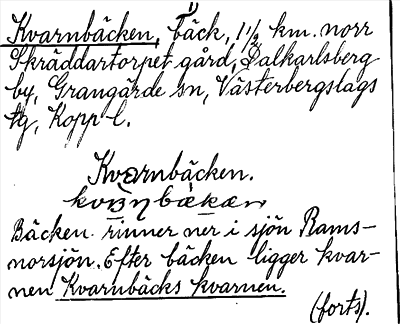 Kvarnbäcken, bäck, 1 1/2 km. norr
Skräddartorpet gård, Dalkarlsberg
by, Grangärde sn, Västerbergslags
tg, Kopp l.
Kvarnbäcken.
Bäcken rinner ner i sjön Rams-
norsjön. Efter bäcken ligger kvar-
nen Kvarnbäcks kvarnen.
(forts).